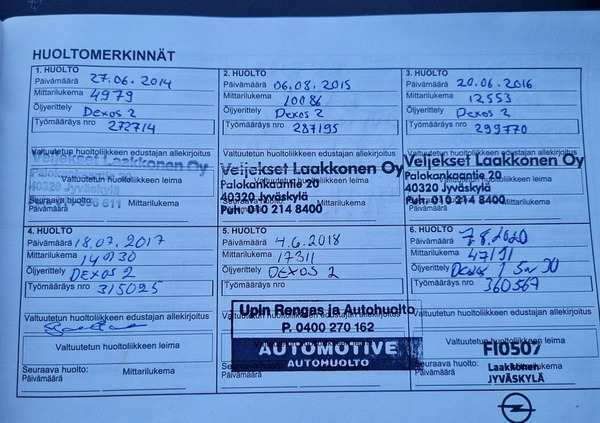 HUOLTOMERKINNÄT
1. HUOLTO
Päivämäärä 27.06.2014
Mittarilukema 4979
Öljyerittely Dexos 2
Työmääräys nro 272714
Valtuutetun huoltoliikkeen edustajan allekirjoitus
Veljekset Laakkonen Oy
Valtuutetun huoltoliikkeen leima
40320 Jyväskylä
Seuraava huolto:
Päivämäärä Mittarilukema
2. HUOLTO
Päivämäärä 06.08.2015
Mittarilukema 10086
Öljyerittely Dexos 2
Työmääräys nro 287195
Valtuutetun huoltoliikkeen edustajan allekirjoitus
Veljekset Laakkonen Oy
Palokankaantie 20
Valtuutetun huoltoliikkeen leima
40320 Jyväskylä
Puh. 010 214 8400
Seuraava huolto:
Päivämäärä Mittarilukema
3. HUOLTO
Päivämäärä 20.06.2016
Mittarilukema 12553
Öljyerittely Dexos 2
Työmääräys nro 299770
Valtuutetun huoltoliikkeen edustajan allekirjoitus
Veljekset Laakkonen Oy
Palokankaantie 20
Valtuutetun huoltoliikkeen leima
40320 Jyväskylä
Puh. 010 214 8400
Seuraava huolto:
Päivämäärä Mittarilukema
4. HUOLTO
Päivämäärä 18.07.2017
Mittarilukema
Öljyerittely DEXOS 2
Työmääräys nro 315095
Valtuutetun huoltoliikkeen edustajan allekirjoitus
Valtuutetun huoltoliikkeen leima
Seuraava huolto:
Päivämäärä Mittarilukema
5. HUOLTO
Päivämäärä 4.6.2018
Mittarilukema 17311
Öljyerittely DEXOS 2
Työmääräys nro
Upin Rengas ja Autohuolto
Valtuutetun huoltoliikkeen edustajan allekirjoitus
P. 0400 270 162
Valtuutetun huoltoliikkeen leima
AUTOMOTIVE
AUTOHUOLTO
Seuraava huolto:
Päivämäärä Mittarilukema
6. HUOLTO
Päivämäärä 7.8.2020
Mittarilukema
Öljyerittely 5w30
Työmääräys nro 360567
Valtuutetun huoltoliikkeen edustajan allekirjoitus
Valtuutetun huoltoliikkeen leima
FI0507
Laakkonen
JYVÄSKYLÄ
Seuraava huolto:
Päivämäärä Mittarilukema